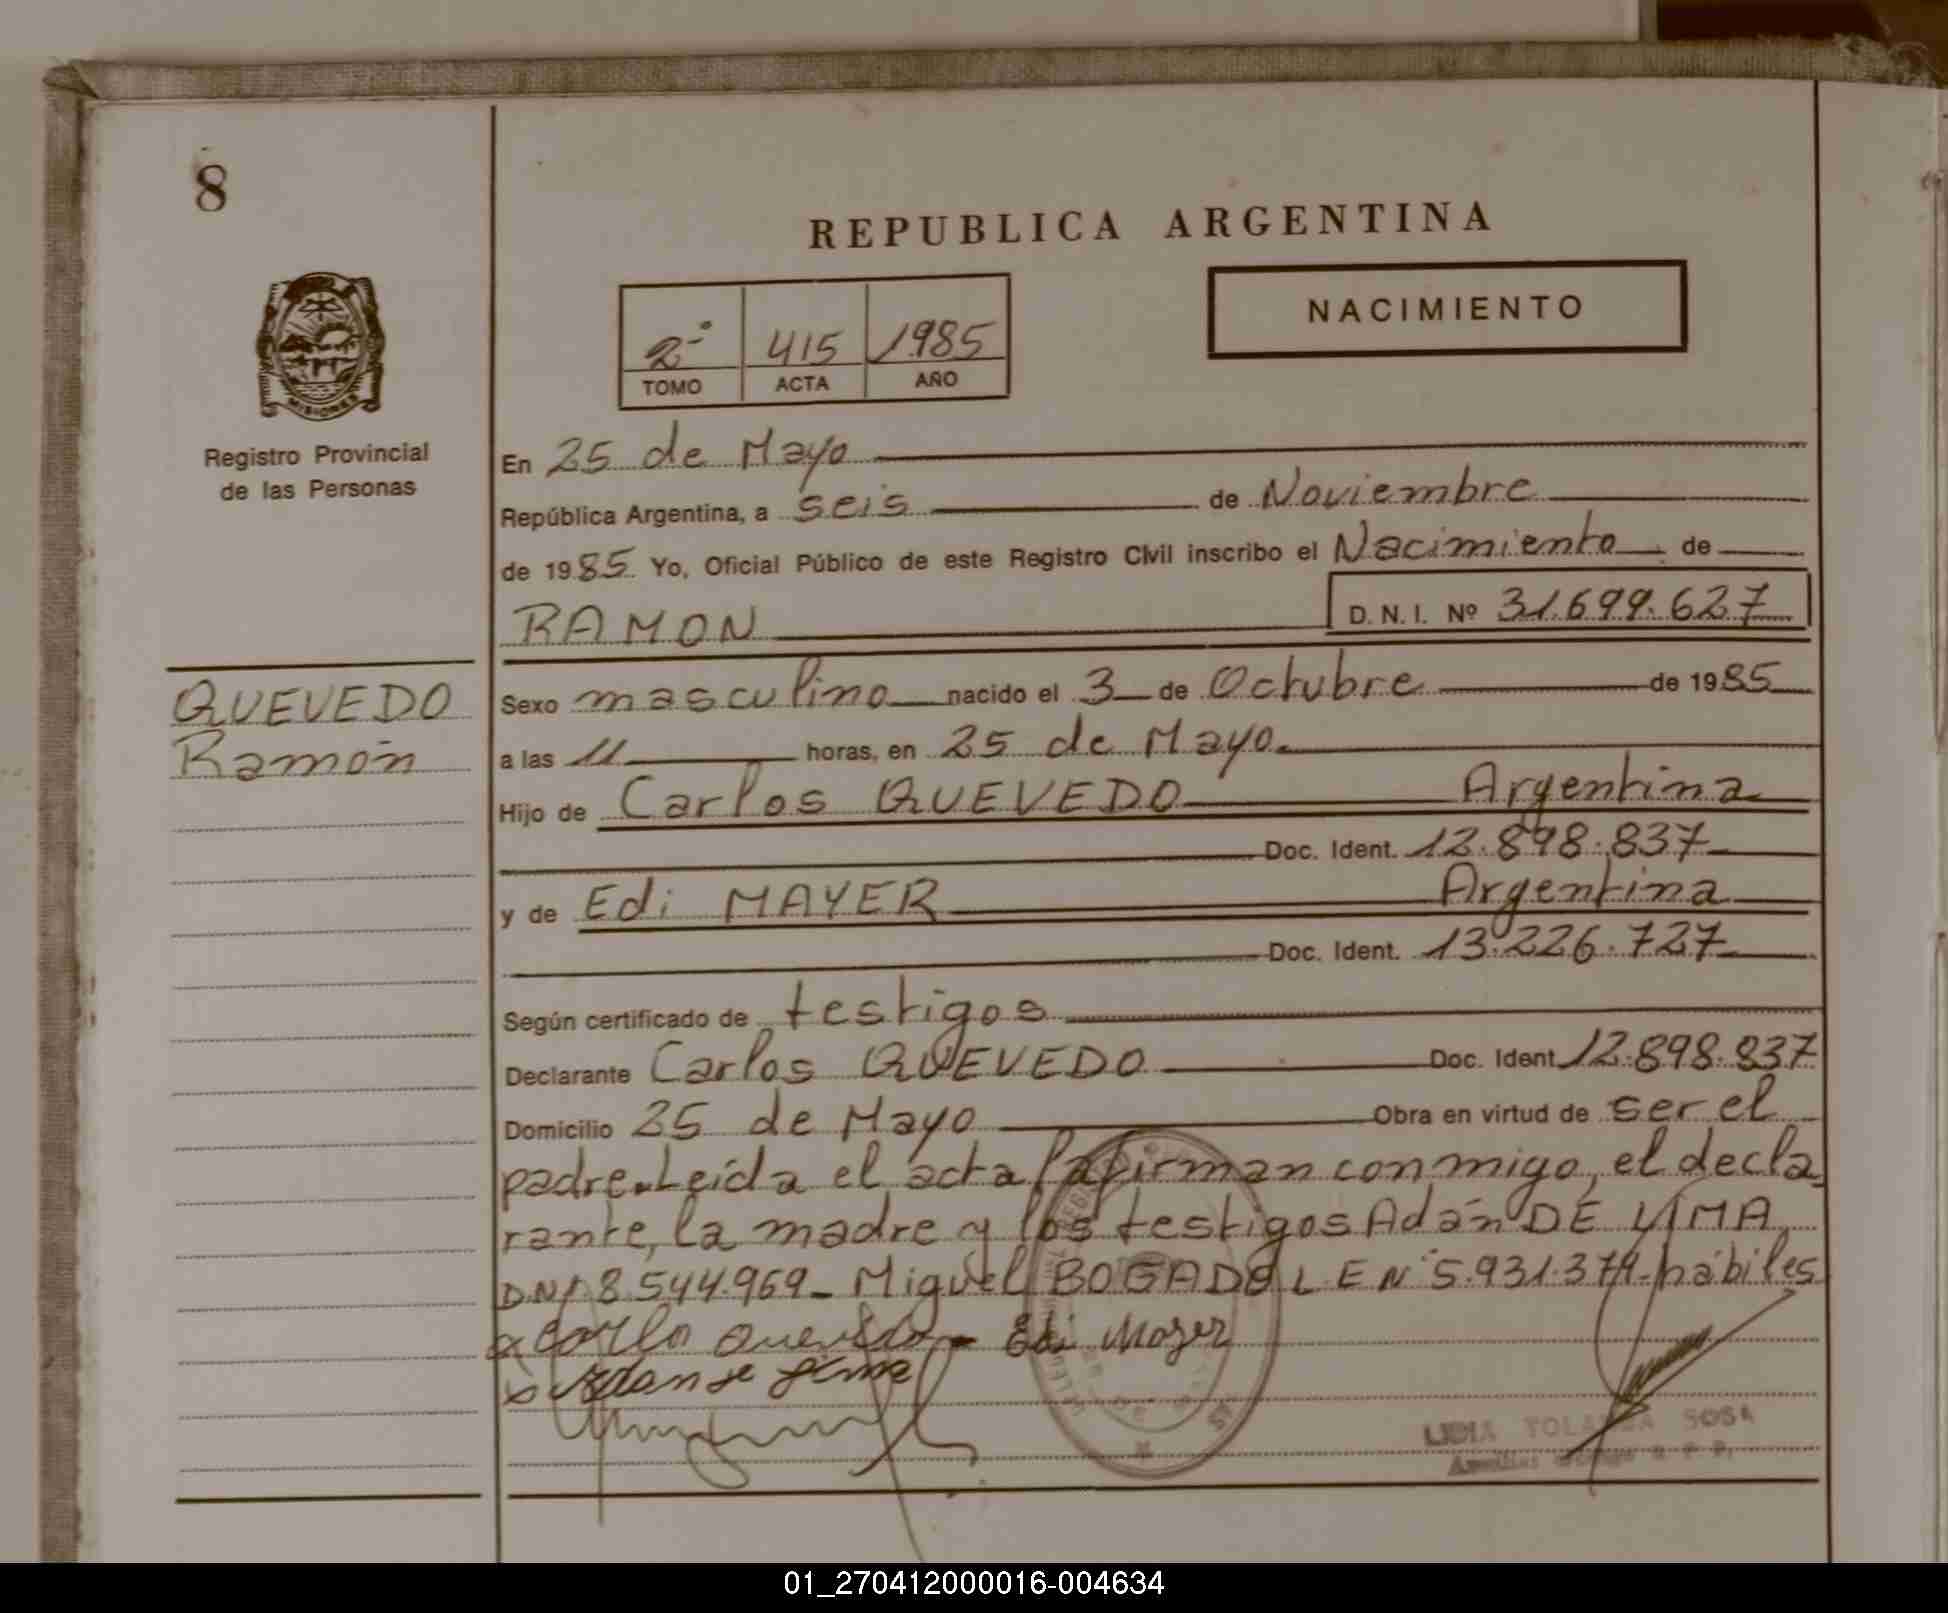 8
REPUBLICA ARGENTINA
NACIMIENTO
2º 415 1985
TOMO ACTA AÑO
MISIONES
Registro Provincial
de las Personas
En 25 de Mayo
República Argentina, a seis de Noviembre
de 1985 Yo, Oficial Público de este Registro Civil inscribo el Nacimiento de
RAMON D.N.I. Nº 31.699.627
QUEVEDO
Ramón
Sexo masculino nacido el 3 de Octubre de 1985
a las 11 horas, en 25 de Mayo.
Hijo de Carlos QUEVEDO Argentina
Doc. Ident. 12.898.837
y de Edi MAYER Argentina
Doc. Ident. 13.226.727
Según certificado de testigos
Declarante Carlos QUEVEDO Doc. Ident 12.898.837
Domicilio 25 de Mayo Obra en virtud de ser el
padre. Leída el acta la firman conmigo, el decla_
rante, la madre y los testigos Adán DE LIMA
DNI 8.544.969_ Miguel BOGADO L E Nº 5.931.379_ hábiles
Edi Mayer
LIDIA YOLANDA SOSA
01_270412000016-004634